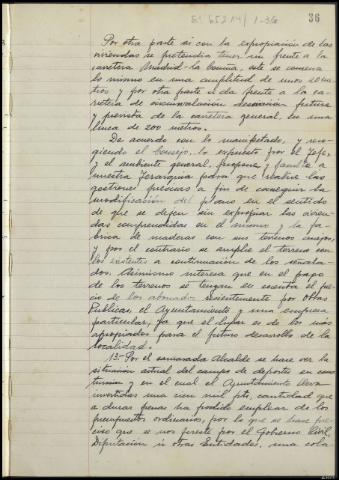 36
Por otra parte si con la expropiación de las
viviendas se pretendia tener un frente a la
carretera Madrid-la Coruña, este se conserva
lo mismo en una amplitud de unos 20 me
tros y por otra parte da frente a la ca-
rretera de circunvalación desviación futura
y prevista de la carretera general, en una
linea de 200 metros.
De acuerdo con lo manifestado, y reco-
giendo el Consejo, lo expuesto por el Jefe,
y el ambiente general, propone y faculta a
nuestra Jerarquia para que realice las
gestiones precisas a fin de conseguir la
modificación del plano en el sentido
de que se dejen sin expropiar las vivien
das comprendidas en el mismo y la fa-
brica de maderas con sus terrenos anejos,
y por el contrario se amplie el terreno con
los existentes a continuación de los señala-
dos. Asimismo interesa que en el pago
de los terrenos se tengan en cuenta el pre
cio de los abonados recientemente por Obras
Publicas, el Ayuntamiento y una empresa
particular, ya que el lugar es de los más
apropiados para el futuro desarrollo de la
localidad.
13- Por el camarada Alcalde se hace ver la
situación actual del campo de deportes en cons
trucción y en el cual el Ayuntamiento lleva
invertidas unas cien mil pts, cantidad que
a duras penas ha podido emplear de los
presupuestos ordinarios, por lo que se hace pre
ciso que se nos preste por el Gobierno Civil,
Diputación u otras Entidades, una cola